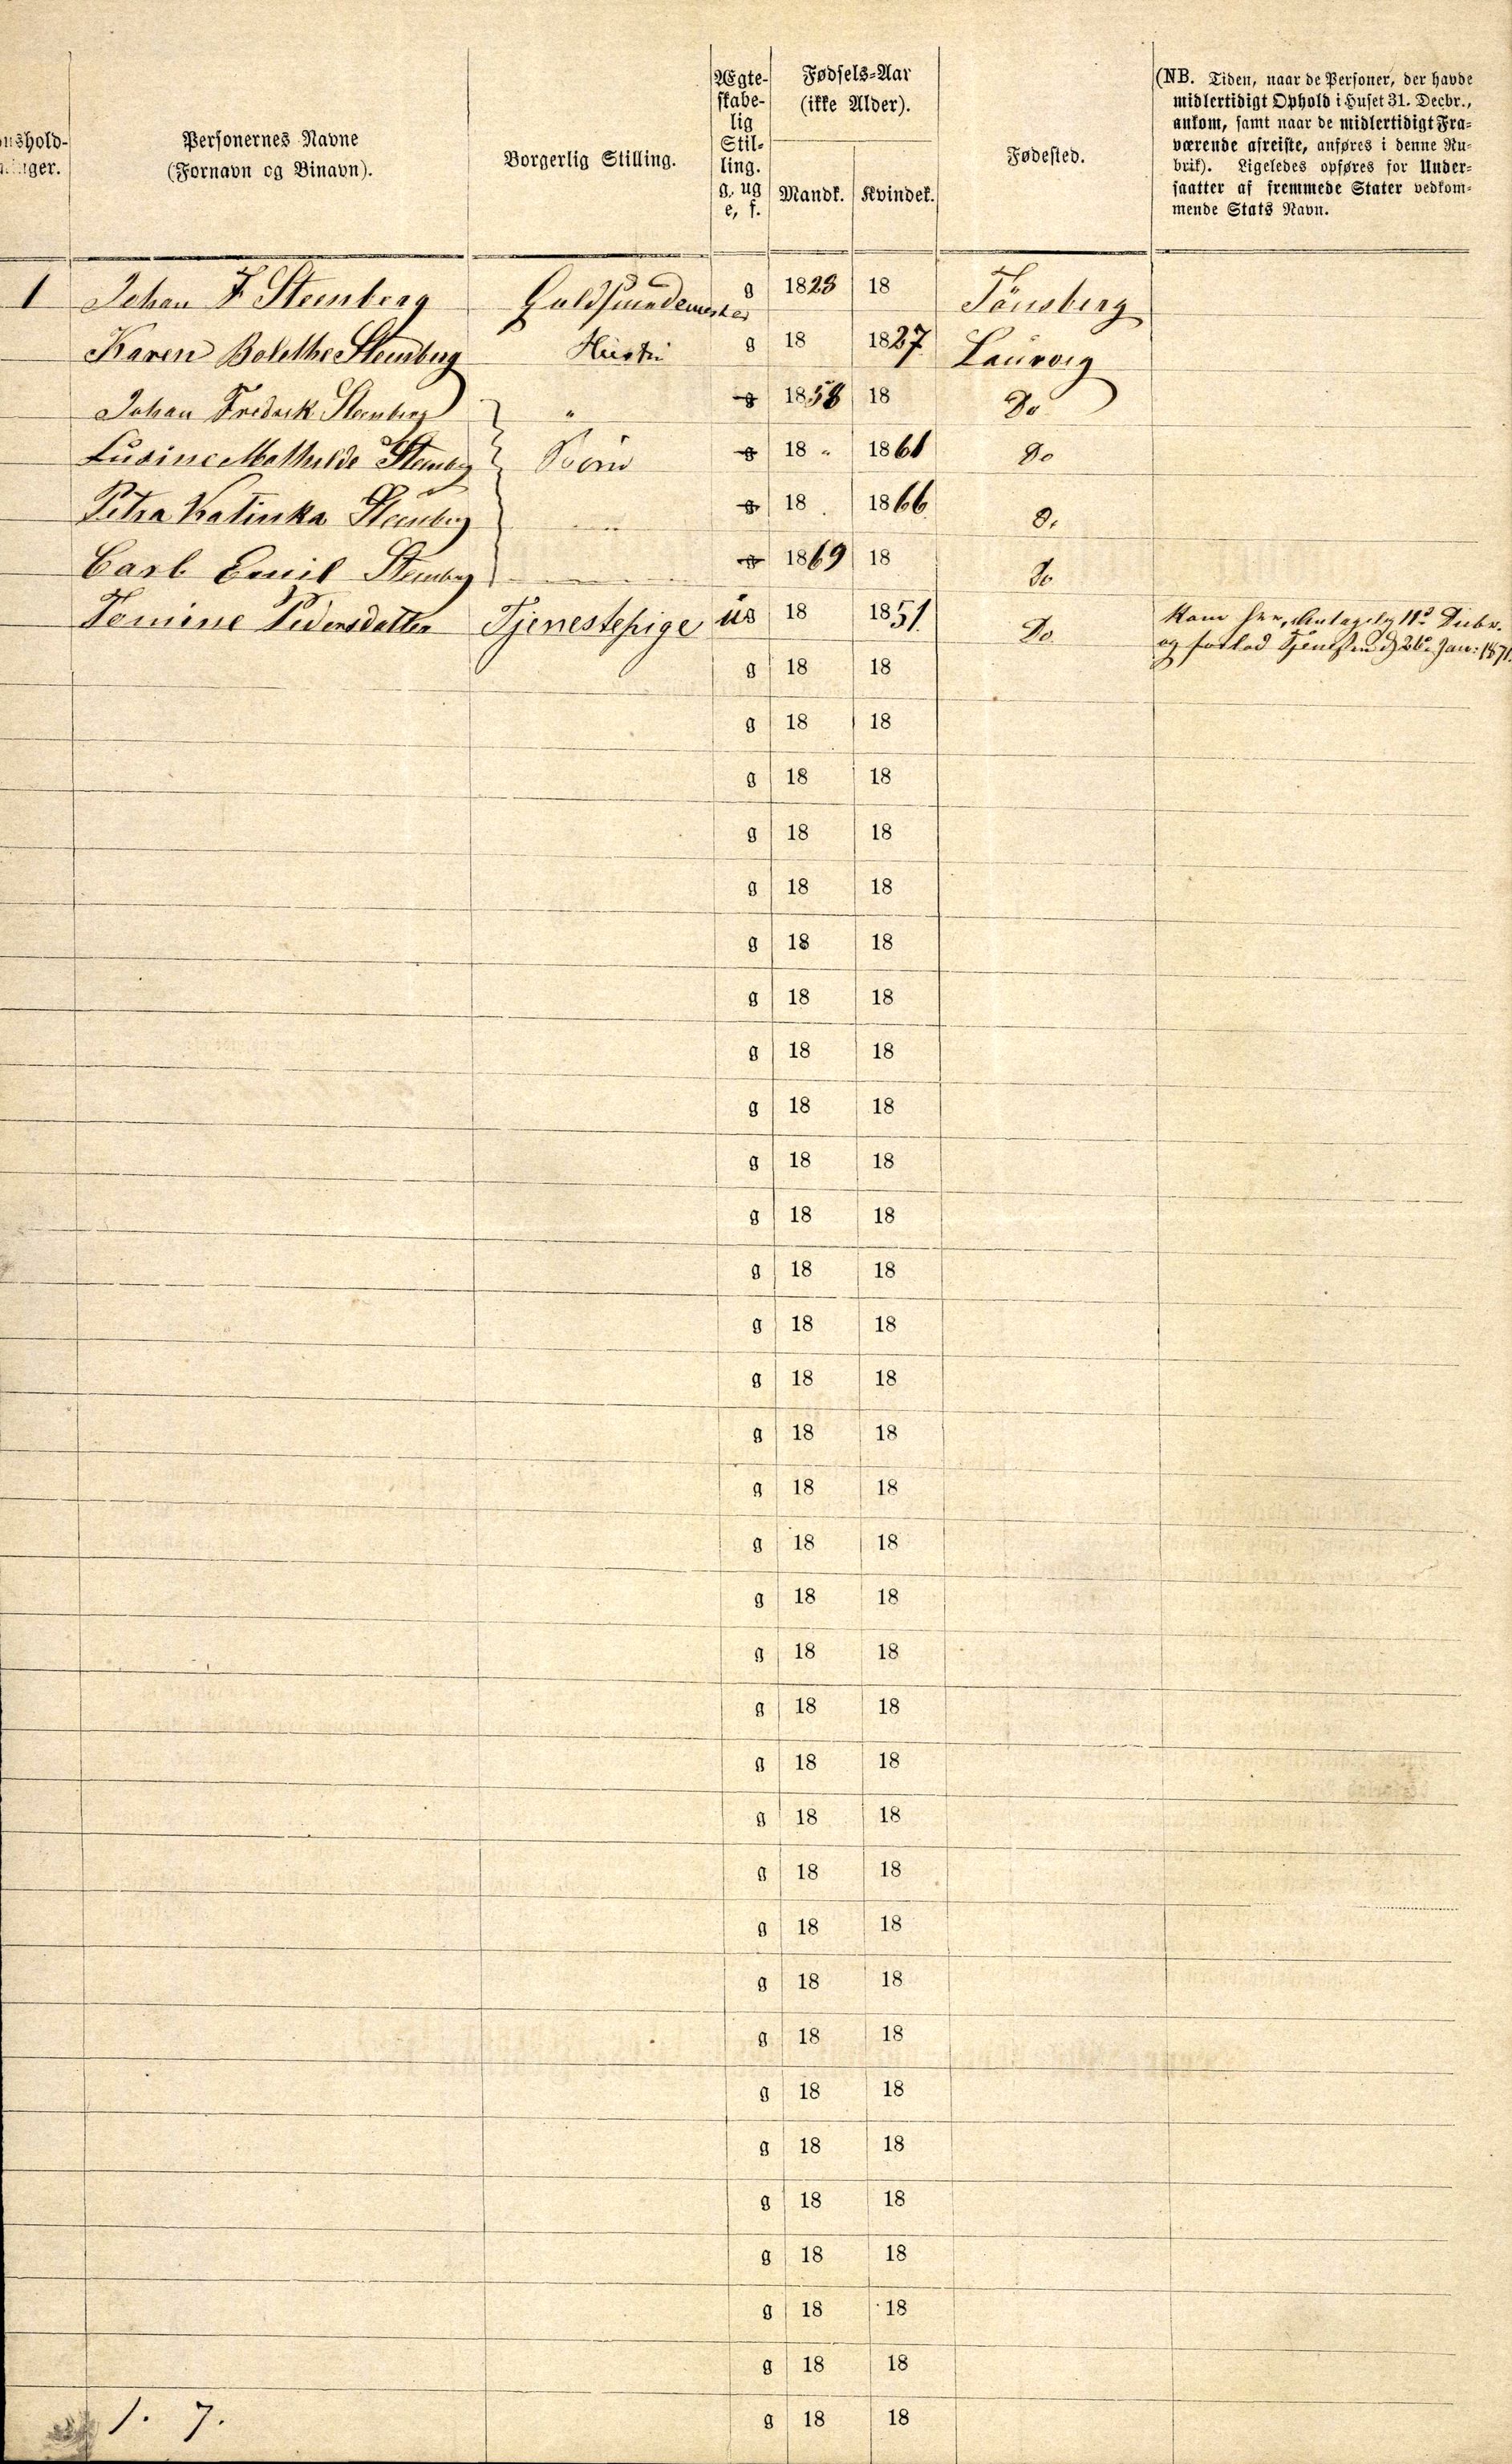 Personernes Navne
(Fornavn og Binavn).
Borgerlig Stilling.
Ægte-
skabe-
lig
Stil-
ling.
g, ug
e, f.
Fødsels-Aar
(ikke Alder).
Mandk. Kvindek.
Fødested.
(NB. Tiden, naar de Personer, der havde
midlertidigt Ophold i Huset 31. Decbr.,
ankom, samt naar de midlertidigt Fra-
værende afreiste, anføres i denne Ru-
brik). Ligeledes opføres for Under-
saatter af fremmede Stater vedkom-
mende Stats Navn.
1 Johan F. Steenberg Guldsmedemester g 1823 18 Tönsberg
Karen Bolethe Steenberg Hustru g 18 1827 Laurvig
Johan Fredrik Steenberg " g 1858 18 Do
Lusine Mathilde Steenberg Börn g 18 " 1861 Do
Petra Katinka Steenberg g 18 1866 Do
Carl Emil Steenberg g 1869 18 Do
Tomine Pedersdatter Tjenestepige ug 18 1851 Do Kom her, Decbr.
og forlod Tjenesten d 26 Jan: 1871.
g 18 18
g 18 18
g 18 18
g 18 18
g 18 18
g 18 18
g 18 18
g 18 18
g 18 18
g 18 18
g 18 18
g 18 18
g 18 18
g 18 18
g 18 18
g 18 18
g 18 18
g 18 18
g 18 18
g 18 18
g 18 18
g 18 18
g 18 18
g 18 18
g 18 18
g 18 18
g 18 18
g 18 18
g 18 18
g 18 18
g 18 18
g 18 18
1. 7. g 18 18